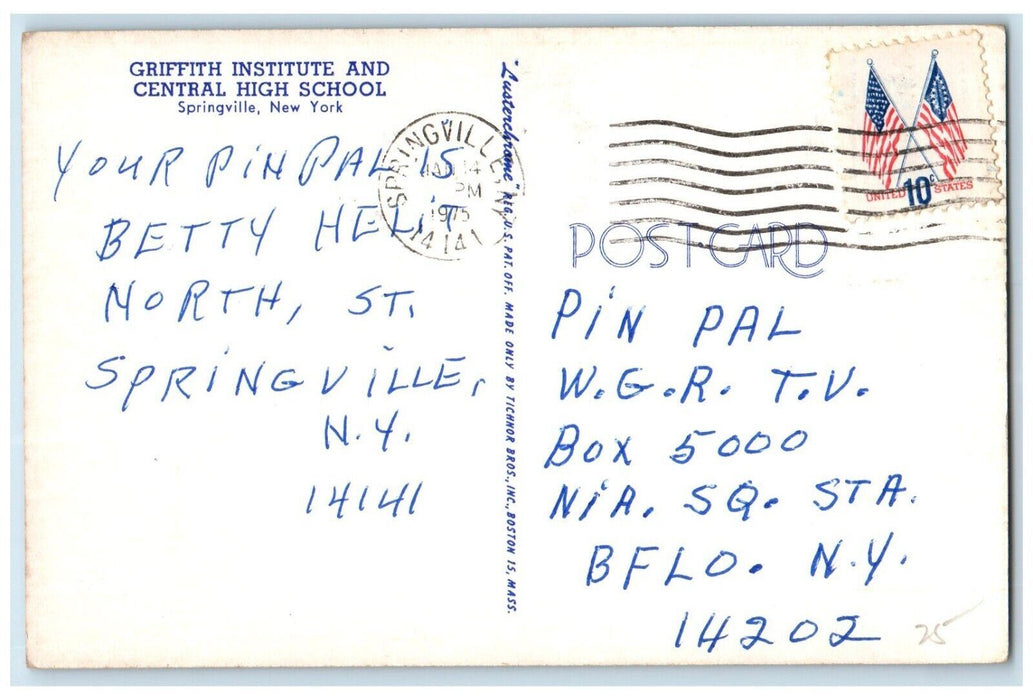 GRIFFITH INSTITUTE AND
CENTRAL HIGH SCHOOL
Springville, New York
YOUR PIN PAL IS
BETTY HELIT
NORTH, ST.
SPRINGVILLE,
N.Y.
14141
SPRINGVILLE, NY
JAN 14
PM
1975
14141
"Lusterchrome" REG. U.S. PAT. OFF. MADE ONLY BY TICHNOR BROS., INC., BOSTON 15, MASS.
UNITED 10c STATES
POST CARD
PIN PAL
W.G.R. T.V.
BOX 5000
NIA. SQ. STA.
BFLO. N.Y.
14202
25